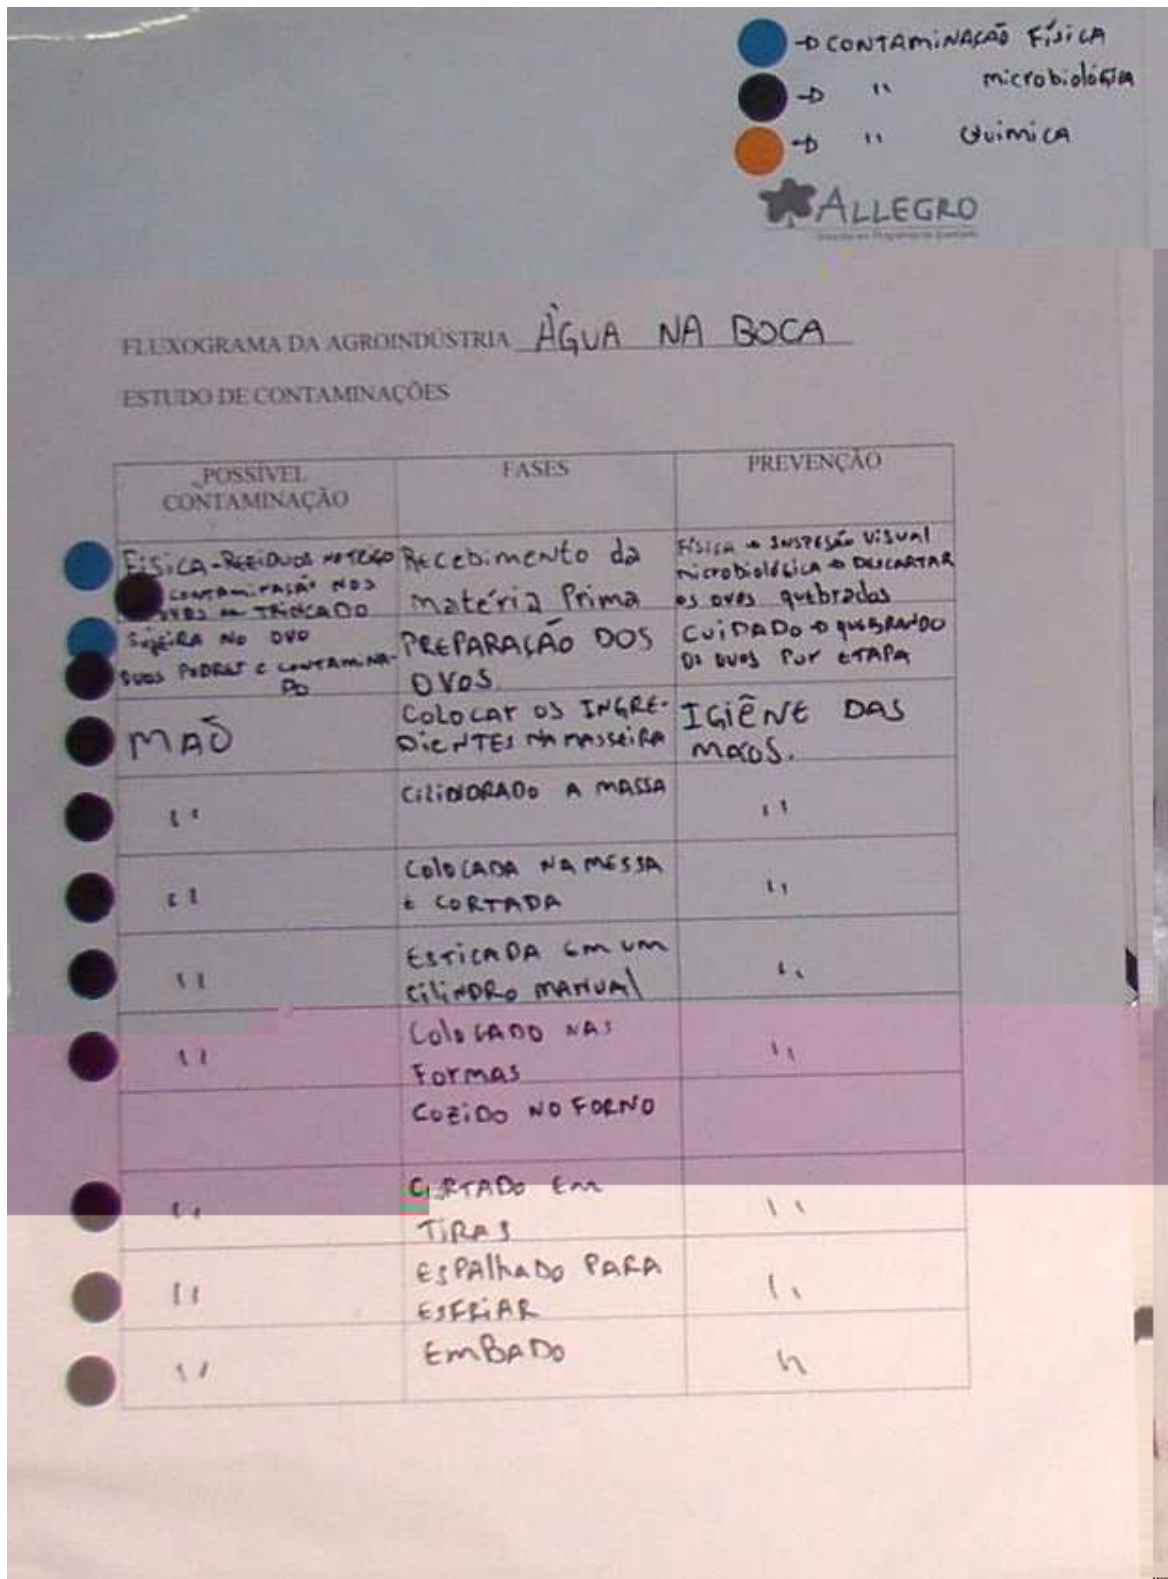 → CONTAMINAÇÃO FÍSICA
→ " microbiológica
→ " Química
ALLEGRO
FLUXOGRAMA DA AGROINDÚSTRIA ÀGUA NA BOCA
ESTUDO DE CONTAMINAÇÕES
POSSÍVEL
CONTAMINAÇÃO
FASES
PREVENÇÃO
FÍSICA - RESIDUOS NO TRIGO
CONTAMINASÃO NOS
OVOS TRINCADO
Recebimento da
matéria Prima
FÍSICA → INSPESÃO VISUAL
microbiológica → DESCARTAR
os ovos quebrados
SUJEIRA NO OVO
OVOS PODRES E CONTAMINA-
DO
PREPARAÇÃO DOS
OVOS
CUIDADO → QUEBRANDO
OS OVOS POR ETAPA
MAÕ
COLOCAR OS INGRE-
DIENTES NA MASSEIRA
IGIÊNE DAS
MAOS.
"
CILINDRADO A MASSA
"
"
COLOCADA NA MESSA
E CORTADA
"
"
ESTICADA EM UM
CILINDRO MANUAL
"
"
COLOCADO NAS
FORMAS
"
COZIDO NO FORNO
"
CORTADO EM
TIRAS
"
"
ESPALHADO PARA
ESFRIAR
"
"
EMBADO
"